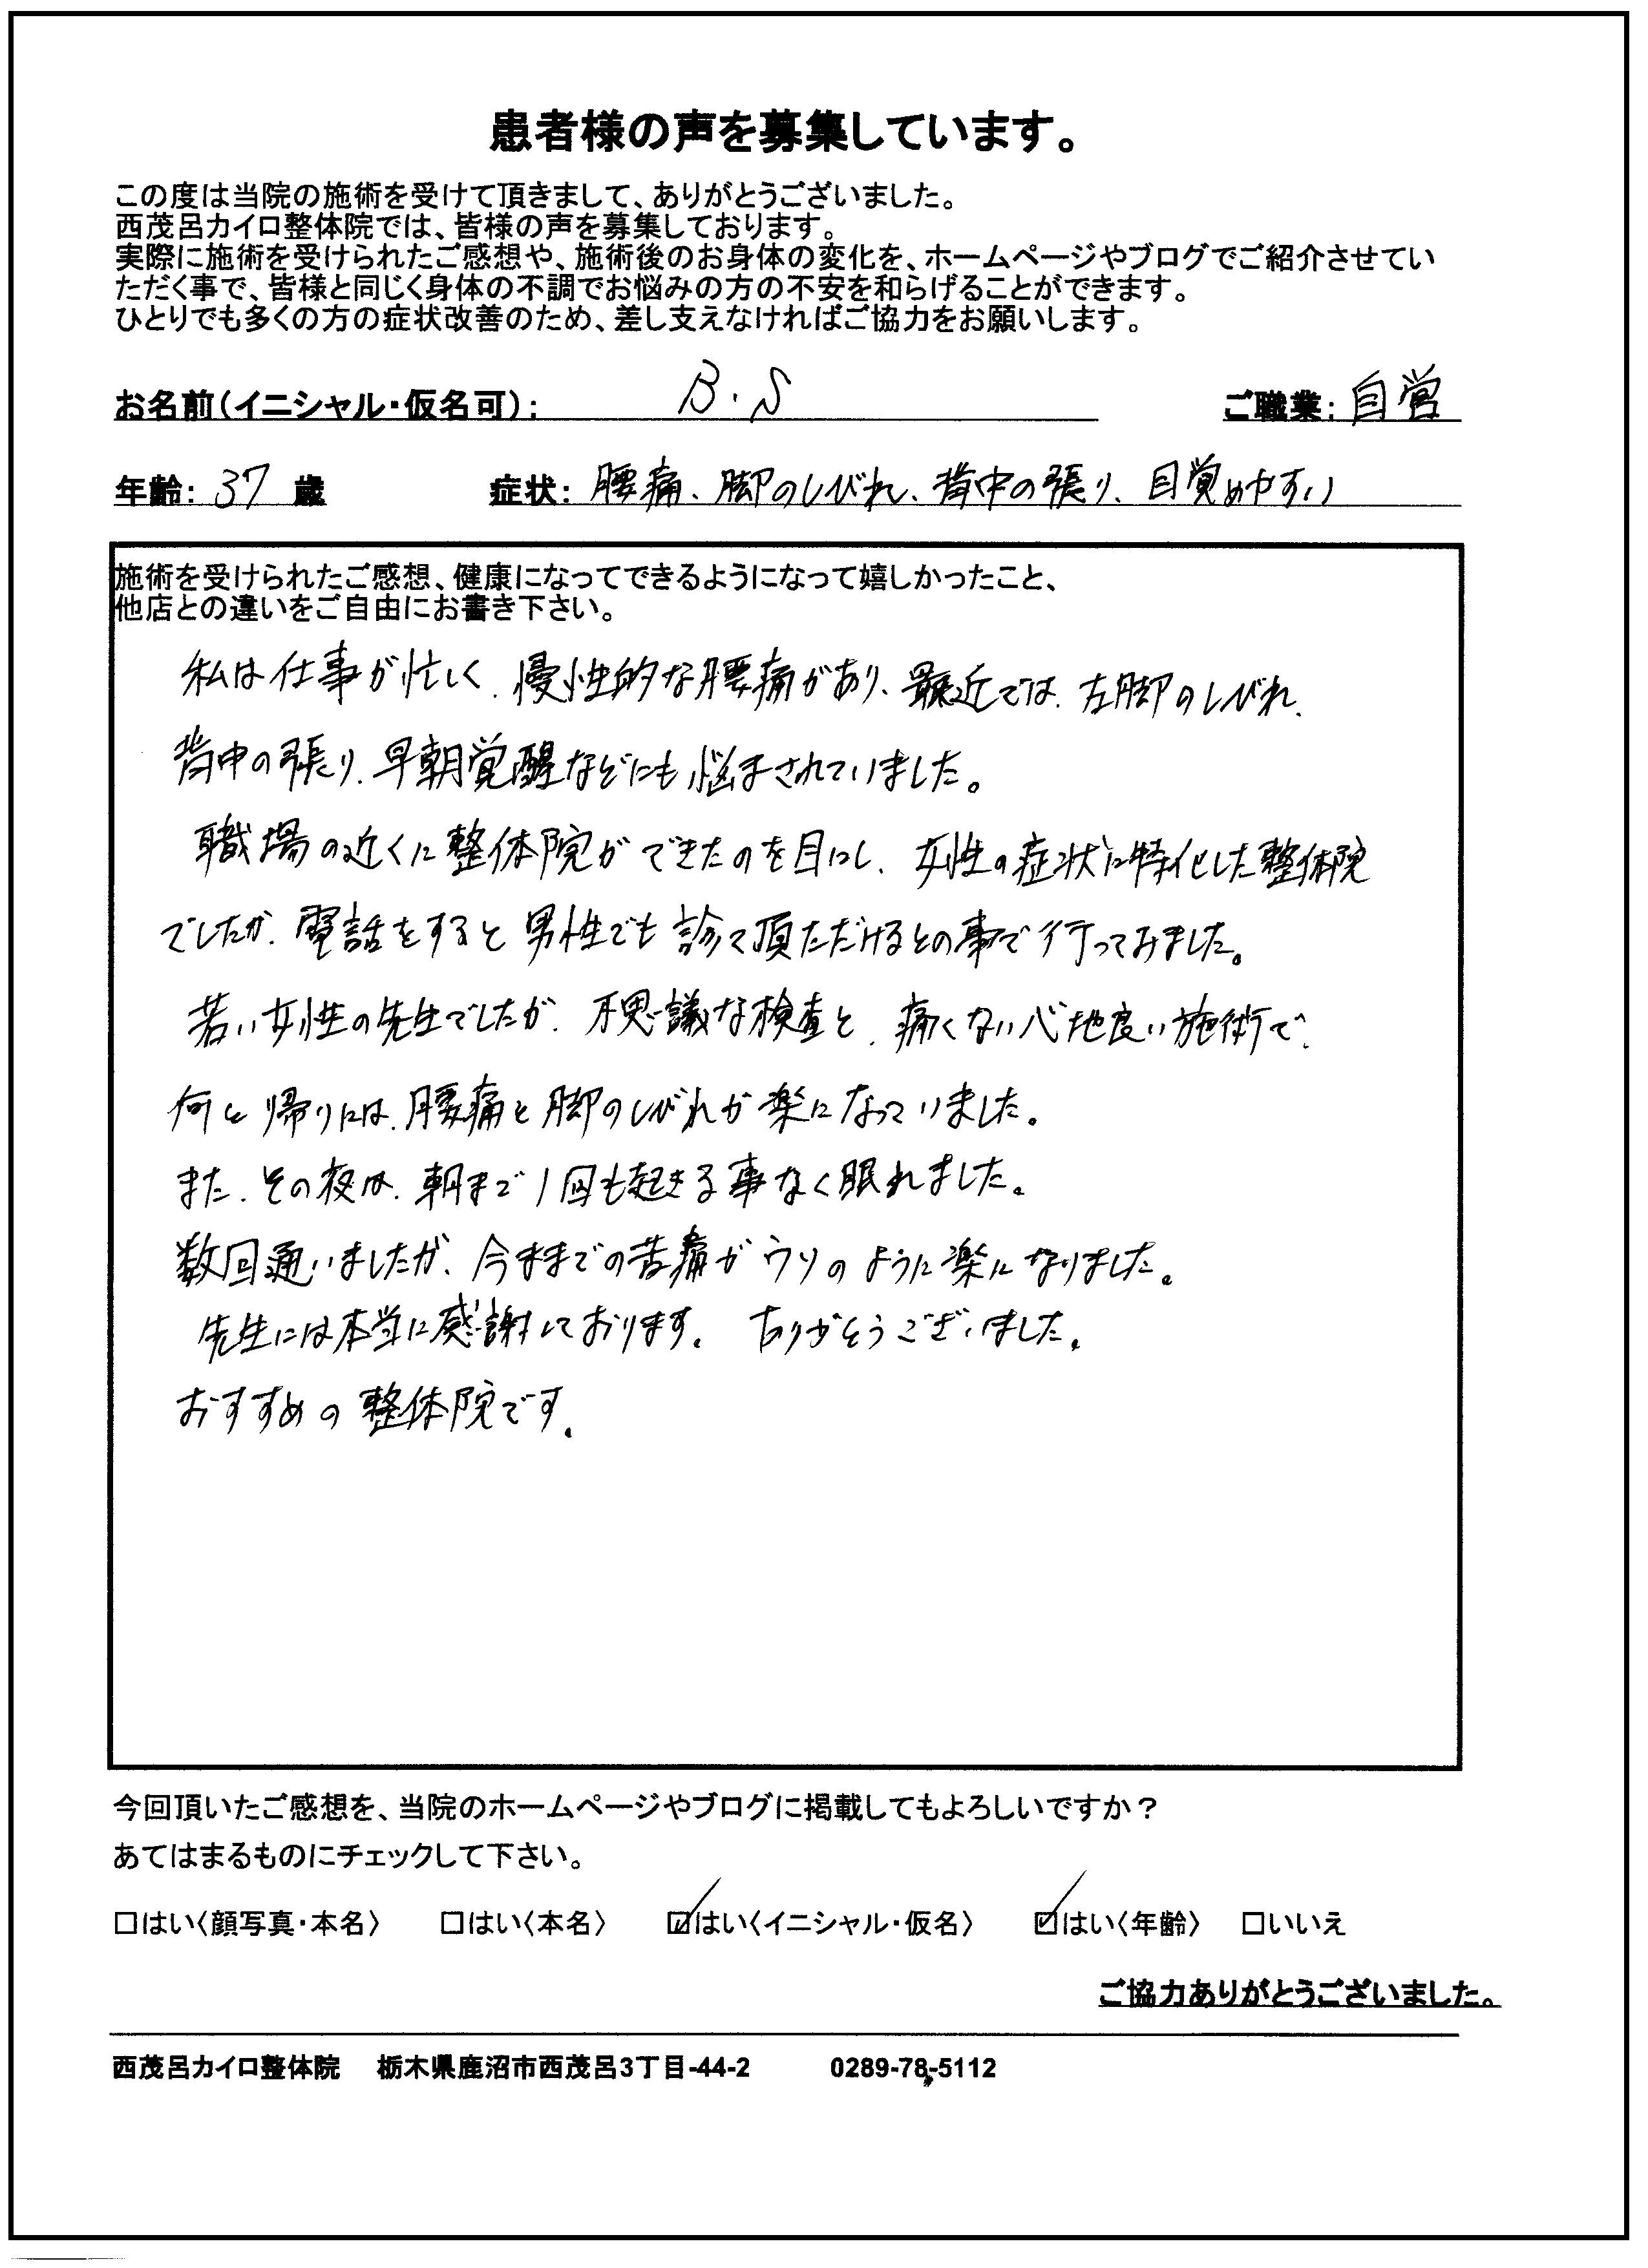 患者様の声を募集しています。
この度は当院の施術を受けて頂きまして、ありがとうございました。
西茂呂カイロ整体院では、皆様の声を募集しております。
実際に施術を受けられたご感想や、施術後のお身体の変化を、ホームページやブログでご紹介させてい
ただく事で、皆様と同じく身体の不調でお悩みの方の不安を和らげることができます。
ひとりでも多くの方の症状改善のため、差し支えなければご協力をお願いします。
お名前(イニシャル・仮名可): B.S ご職業: 自営
年齢: 37 歳 症状: 腰痛、脚のしびれ、背中の張り、目覚めやすい
施術を受けられたご感想、健康になってできるようになって嬉しかったこと、
他店との違いをご自由にお書き下さい。
私は仕事が忙しく、慢性的な腰痛があり、最近では、左脚のしびれ、
背中の張り、早朝覚醒などにも悩まされていました。
職場の近くに整体院ができたのを目にし、女性の症状に特化した整体院
でしたが、電話をすると男性でも診て頂ただけるとの事で行ってみました。
若い女性の先生でしたが、不思議な検査と、痛くない心地良い施術で、
何と帰りには、腰痛と脚のしびれが楽になっていました。
また、その夜は、朝まで1回も起きる事なく眠れました。
数回通いましたが、今ままでの苦痛がウソのように楽になりました。
先生には本当に感謝しております。 ありがとうございました。
おすすめの整体院です。
今回頂いたご感想を、当院のホームページやブログに掲載してもよろしいですか?
あてはまるものにチェックして下さい。
□はい〈顔写真・本名〉 □はい〈本名〉 ☑はい〈イニシャル・仮名〉 ☑はい〈年齢〉 □いいえ
ご協力ありがとうございました。
西茂呂カイロ整体院 栃木県鹿沼市西茂呂3丁目-44-2 0289-78-5112